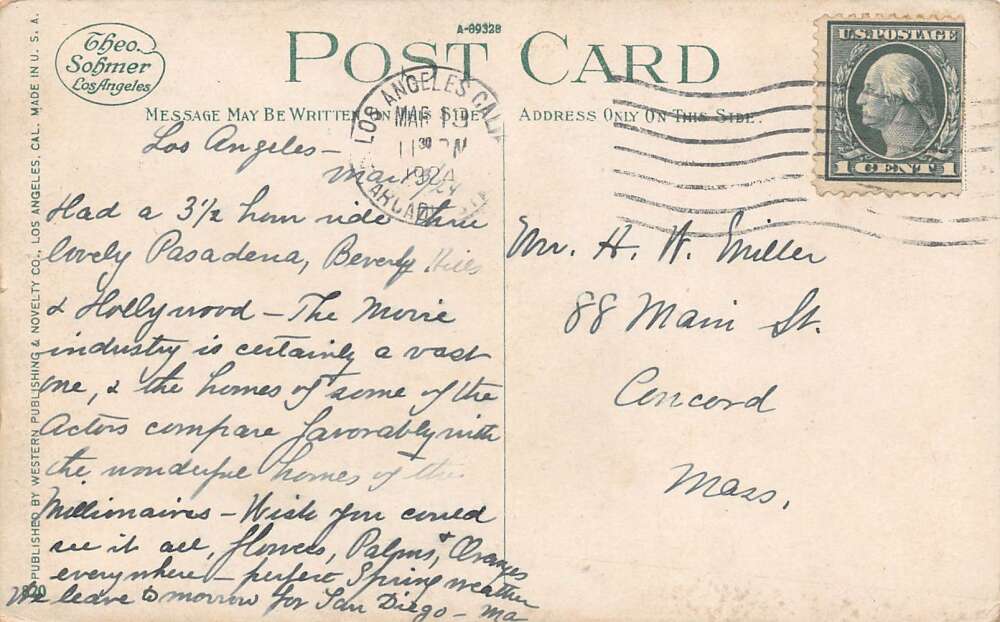 A-89328
Theo.
Sohmer
Los Angeles
POST CARD
MESSAGE MAY BE WRITTEN ON THIS SIDE
ADDRESS ONLY ON THIS SIDE.
LOS ANGELES CALIF
MAR 19
11 30 PM
1924
ARCADE
U.S. POSTAGE
1 CENT 1
Los Angeles –
Mar /24
Had a 3½ hour ride thru
lovely Pasadena, Beverly Hills
& Hollywood – The Movie
industry is certainly a vast
one, & the homes of some of the
Actors compare favorably with
the wonderful homes of the
Millionaires – Wish you could
see it all, flowers, Palms & Oranges
everywhere – perfect Spring weather
We leave tomorrow for San Diego – Ma
Mr. H. W. Miller
88 Main St.
Concord
Mass.
PUBLISHED BY WESTERN PUBLISHING & NOVELTY CO., LOS ANGELES, CAL. MADE IN U. S. A.